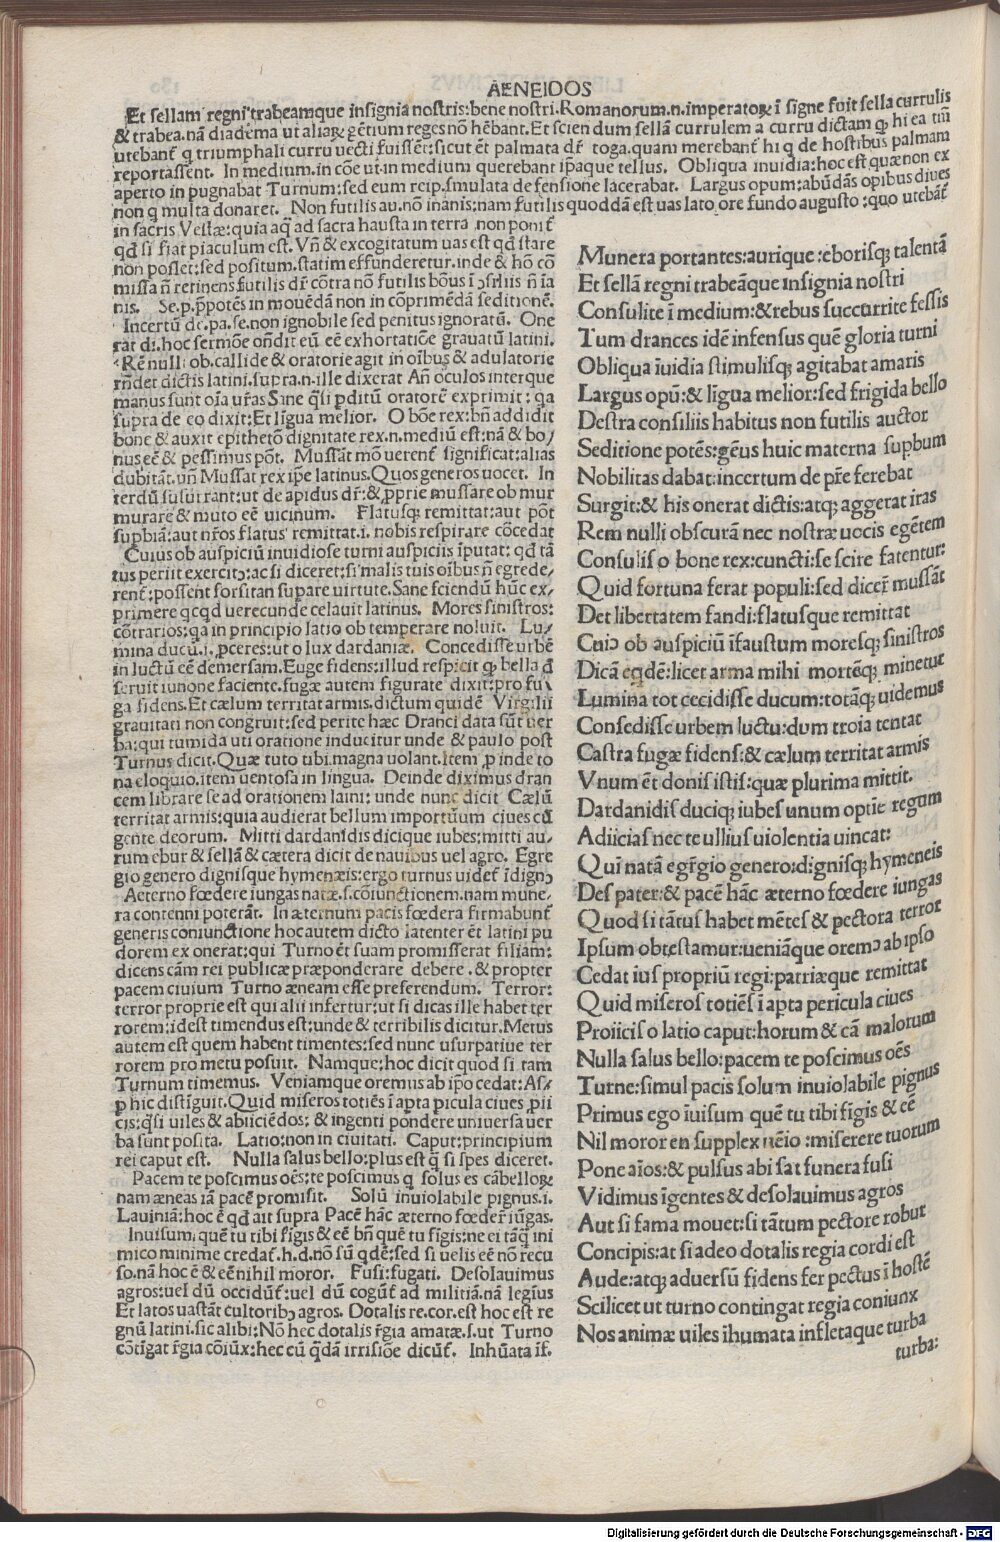 AENEIDOS
Et sellam regni trabeamque insignia nostris:bene nostri.Romanorum.n.imperatoꝝ ī signe fuit sella currulis
& trabea.nā diadema ut aliaꝝ gētium reges nō hēbant.Et scien dum sellā currulem a curru dictam ꝙ hi ea tm̄
utebant̄ q triumphali curru uecti fuissēt:sicut ēt palmata dr̄ toga.quam merebant̄ hi q de hostibus palmam
reportassent. In medium.in cōe ut in medium querebant ip̄aque tellus. Obliqua inuidia:hoc est quæ non ex
aperto in pugnabat Turnum:sed eum reip.simulata defensione lacerabat. Largus opum:abūdās opibus diues
non q multa donaret. Non futilis au.nō inanis:nam futilis quoddā est uas lato ore fundo augusto:quo utebāt̄
in sacris Vestæ:quia aq̄ ad sacra hausta in terra non ponit̄
qd̄ si fiat piaculum est. Vn̄ & excogitatum uas est qd̄ stare
non posset:sed positum.statim effunderetur.inde & hō cō
missa n̄ retinens futilis dr̄ cōtra nō futilis bōus ī ꝯsiliis n̄ ia
nis. Se.p.p̄potēs in mouēdā non in cōprimēdā seditionē.
Incertū de.pa.fe.non ignobile sed penitus ignoratū. One
rat di.hoc sermōe on̄dit eū eē exhortatiōe grauatū latini.
Rē nulli ob.callide & oratorie agit in oībus & adulatorie
rn̄det dictis latini.supra.n.ille dixerat An̄ oculos interque
manus sunt oīa ur̄as Sane q̄si p̄ditū oratorē exprimit:qa
supra de eo dixit:Et līgua melior. O bōe rex:bn̄ addidit
bone & auxit epithetō dignitate rex.n.mediū est:nā & bo/
nus eē & pessimus pōt. Mussāt mō uerent̄ significat:alias
dubitāt.un̄ Mussat rex ip̄e latinus.Quos generos uocet. In
terdū susurrant:ut de apidus dr̄:& ꝓprie mussare ob mur
murare & muto eē uicinum. Flatusq; remittat:aut pōt
supbiā:aut nr̄os flatus remittat.i.nobis respirare cōcedat
Cuius ob auspiciū inuidiose turni auspiciis īputat:qd̄ tā
tus periit exercitꝯ:ac si diceret:si malis tuis oībus n̄ egrede/
rent̄:possent forsitan supare uirtute.Sane sciendū hūc ex/
primere qcqd uerecunde celauit latinus. Mores sinistros:
cōtrarios:qa in principio latio ob temperare noluit. Lu/
mina ducū.i.ꝓceres:ut o lux dardaniæ. Concedisse urbē
in luctū eē demersam.Euge fidens:illud respicit ꝙ bella d̄
seruit iunone faciente.fugæ autem figurate dixit:pro fu
ga fidens.Et cælum territat armis.dictum quidē Virgilii
grauitati non congruit:sed perite hæc Dranci data sūt uer
ba:qui tumida uti oratione inducitur unde & paulo post
Turnus dicit.Quæ tuto tibi magna uolant.Item ꝓinde to
na eloquio.item uentosa in lingua. Deinde diximus dran
cem librare se ad orationem laini: unde nunc dicit Cælū
territat armis:quia audierat bellum importūum ciues cū
gente deorum. Mitti dardanidis dicique iubes:mitti au/
rum ebur & sellā & cætera dicit de nauibus uel agro. Egre
gio genero dignisque hymenæis:ergo turnus uidet̄ īdignꝯ
Aeterno fœdere iungas natæ.s.cōiunctionem.nam mune/
ra contenni poterāt. In æternum pacis fœdera firmabunt̄
generis coniunctione hoc autem dicto latenter ēt latini pu
dorem exonerat:qui Turno ēt suam promisserat filiam:
dicens cām rei publicæ præponderare debere.& propter
pacem ciuium Turno æneam esse preferendum. Terror:
terror proprie est qui alii infertur:ut si dicas ille habet ter
rorem:idest timendus est:unde & terribilis dicitur.Metus
autem est quem habent timentes:sed nunc usurpatiue ter
rorem pro metu posuit. Namque:hoc dicit quod si tam
Turnum timemus. Veniamque oremus ab ip̄o cedat:As/
ꝑ hic distīguit.Quid miseros totiēs ī apta picula ciues ꝓii
cis:q̄si uiles & abiiciēdos:& ingenti pondere uniuersa uer
ba sunt posita. Latio:non in ciuitati. Caput:principium
rei caput est. Nulla salus bello:plus est q̄ si spes diceret.
Pacem te poscimus oēs:te poscimus q solus es cābelloꝝ
nam æneas iā pacē promisit. Solū inuiolabile pignus.i.
Lauiniā:hoc ē qd̄ ait supra Pacē hāc æterno fœder̄ iūgas.
Inuisum:quē tu tibi fīgis & eē bn̄ quē tu fīgis:ne ei tāq̄ ini
mico minime credat̄.h.d.nō sū qdē:sed si uelis eē nō recu
so.nā hoc ē & eē nihil moror. Fusi:fugati. Desolauimus
agros:uel dū occidūt̄:uel dū cogūt̄ ad militiā.nā legīus
Et latos uastāt cultoribꝯ agros. Dotalis re.cor.est hoc est re
gnū latini.sic alibi:Nō hec dotalis r̄gia amatæ.s.ut Turno
cōtīgat r̄gia cōiūx:hec cū q̄dā irrisiōe dicūt̄. Inhūata if.
Munera portantes:aurique:eborisq; talentā
Et sellā regni trabeāque insignia nostri
Consulite ī medium:& rebus succurrite fessis
Tum drances idē infensus quē gloria turni
Obliqua īuidia stimulisq; agitabat amaris
Largus opū:& līgua melior:sed frigida bello
Destra consiliis habitus non futilis auctor
Seditione potēs:gēus huic materna supbum
Nobilitas dabat:incertum de pr̄e ferebat
Surgit:& his onerat dictis:atq; aggerat iras
Rem nulli obscurā nec nostræ uocis egētem
Consulis o bone rex:cuncti se scire fatentur:
Quid fortuna ferat populi:sed dicer̄ mussāt
Det libertatem fandi:flatusque remittat
Cuiꝯ ob auspiciū īfaustum moresq; sinistros
Dicā eqdē:licet arma mihi mortēq; minetur
Lumina tot cecidisse ducum:totāq; uidemus
Consedisse urbem luctu:dum troia tentat
Castra fugæ fidens:& cælum territat armis
Vnum ēt donis istis:quæ plurima mittit.
Dardanidis duciq; iubes unum optīe regum
Adiicias nec te ullius uiolentia uincat:
Quī natā egr̄gio genero:dignisq; hymeneis
Des pater:& pacē hāc æterno fœdere iungas
Quod si tātus habet mētes & pectora terror
Ipsum obtestamur:ueniāque oremꝯ ab ipso
Cedat ius propriū regi:patriæque remittat
Quid miseros totiēs ī apta pericula ciues
Proiicis o latio caput:horum & cā malorum
Nulla salus bello:pacem te poscimus oēs
Turne:simul pacis solum inuiolabile pignus
Primus ego īuisum quē tu tibi fīgis & eē
Nil moror en supplex uēio:miserere tuorum
Pone aīos:& pulsus abi sat funera fusi
Vidimus īgentes & desolauimus agros
Aut si fama mouet:si tātum pectore robur
Concipis:at si adeo dotalis regia cordi est
Aude:atq; aduersū fidens fer pectus ī hostē
Scilicet ut turno contingat regia coniunx
Nos animæ uiles īhumata infletaque turba
turba:
Digitalisierung gefördert durch die Deutsche Forschungsgemeinschaft - DFG